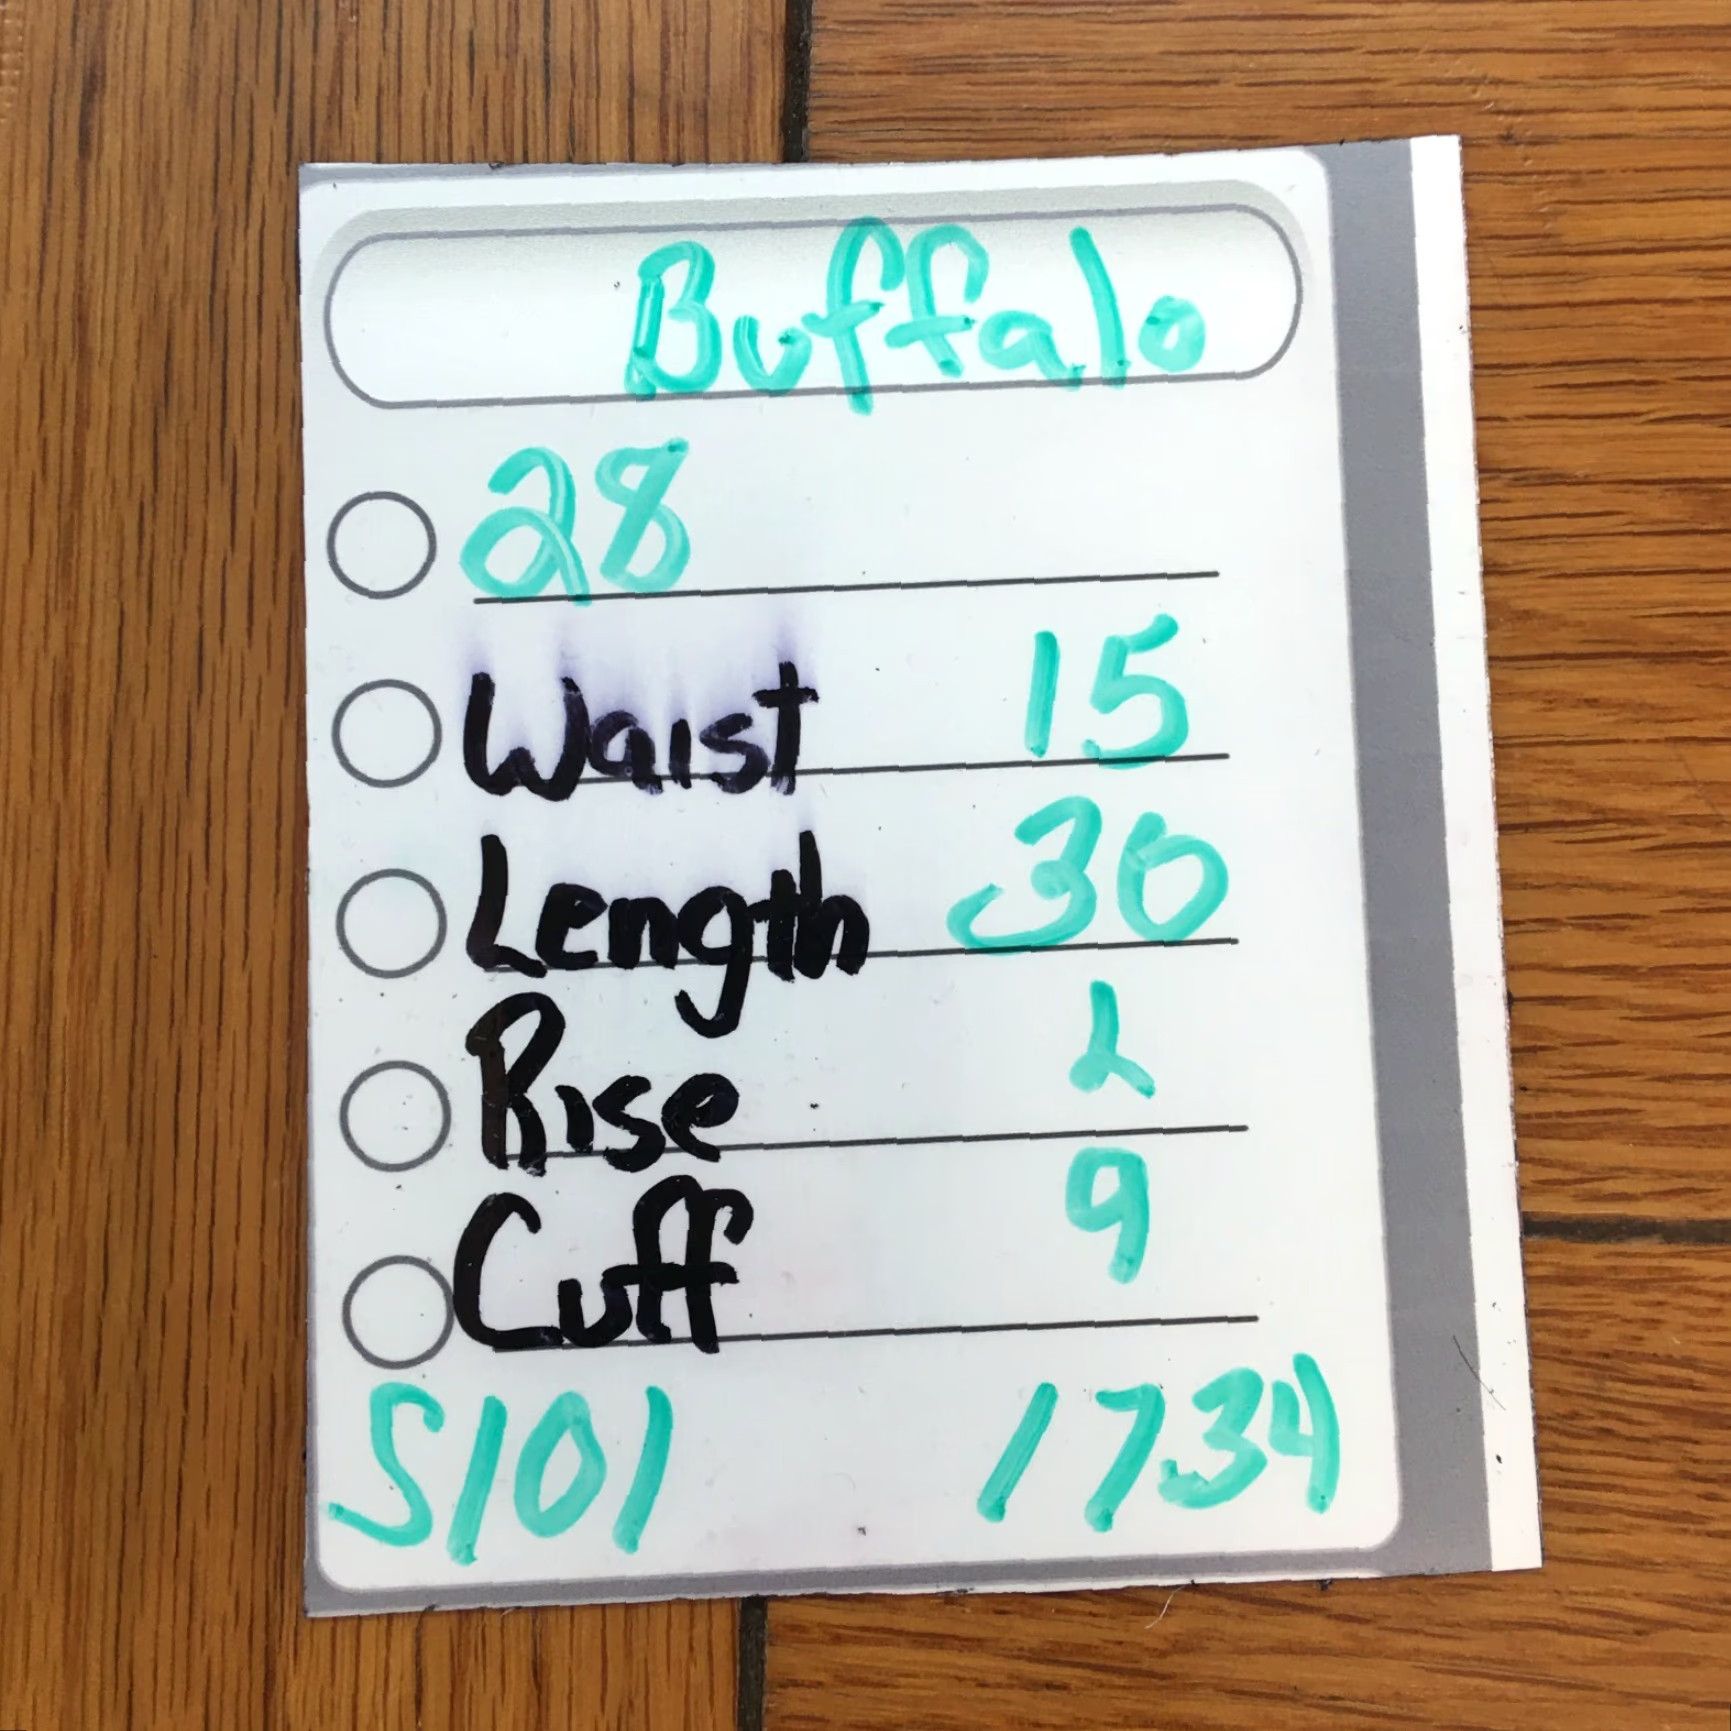 Buffalo
28
Waist 15
Length 30
Rise
Cuff 9
S101 1734